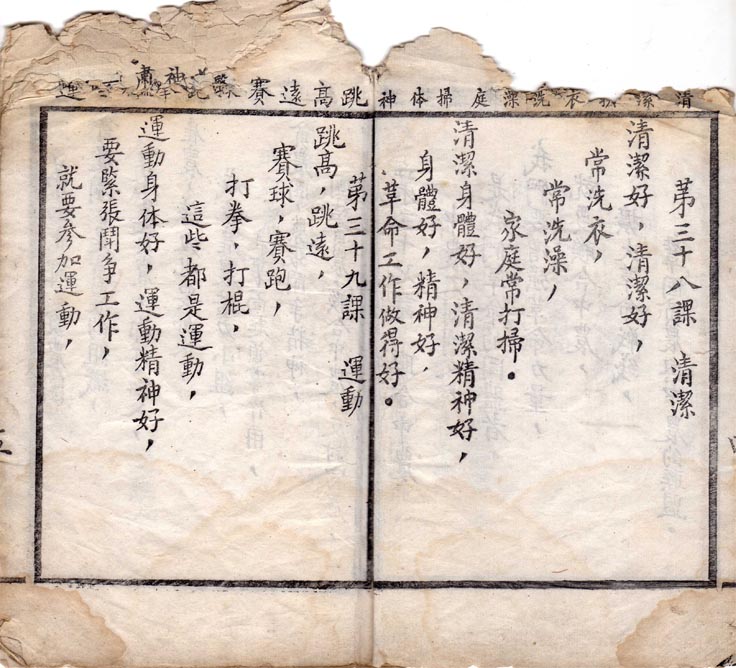 清潔衣洗澡庭掃体神
苐三十八課 清潔
清潔好，清潔好，
常洗衣，
常洗澡，
家庭常打掃。
清潔身體好，清潔精神好，
身體好，精神好，
革命工作做得好。
跳高遠賽
苐三十九課 運動
跳高，跳遠，
賽球，賽跑，
打拳，打棍，
這些都是運動，
運動身体好，運動精神好，
要緊張鬭争工作，
就要参加運動，